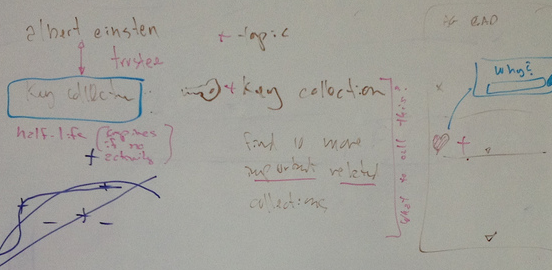 albert einsten
trustee
key collection
half-life (expires
if no
activity)
+ topic
+ key coloction
find is more
importants related
collections
what to call this?
is BAD
why?